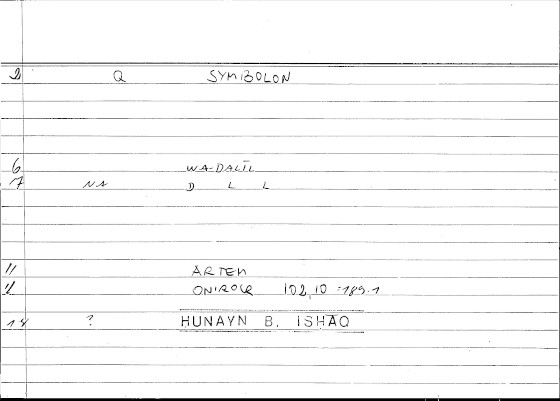 2 Q SYMBOLON
6 WA-DALĪL
7 NA D L L
11 ARTEM
12 ONIROCR 102,10 = 189.1
14 ? HUNAYN B. ISHAQ